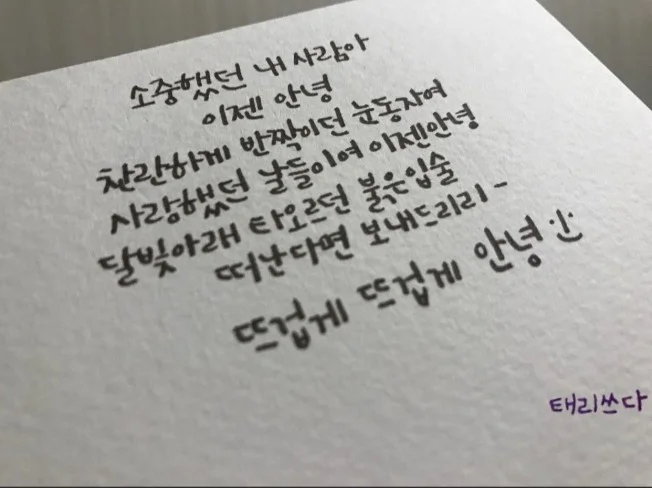 소중했던 내 사람아
이젠 안녕
찬란하게 반짝이던 눈동자여
사랑했던 날들이여 이젠안녕
달빛아래 타오르던 붉은입술
떠난다면 보내드리리-
뜨겁게 뜨겁게 안녕
태리쓰다